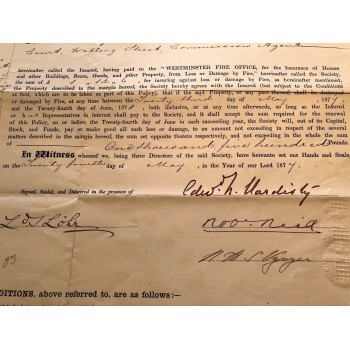 Court, Watling Street, Commission Agent
hereinafter called the Insured, having paid to the "WESTMINSTER FIRE OFFICE, for the Insurance of Houses
and other Buildings, Rents, Goods, and other Property, from Loss or Damage by Fire," hereinafter called the Society,
the sum of £ 1. 12. 6 for Insuring against Loss or Damage by Fire, as hereinafter mentioned,
the Property described in the margin hereof, the Society hereby agrees with the Insured (but subject to the Conditions
at foot, which are to be taken as part of this Policy), that if the said Property, or any part thereof, shall be destroyed
or damaged by Fire, at any time between the Twenty third day of May, 187
and the Twenty-fourth day of June, 187, both inclusive, or at any time afterwards, so long as the Insured
or his Representatives in interest shall pay to the Society, and it shall accept the sum required for the renewal
of this Policy, on or before the Twenty-fourth day of June in each succeeding year, the Society will, out of its Capital,
Stock, and Funds, pay or make good all such loss or damage, to an amount not exceeding in respect of the several
matters described in the margin hereof, the sum set opposite thereto respectively, and not exceeding in the whole the sum
of One thousand five hundred Pounds.
In Witness whereof we, being three Directors of the said Society, have hereunto set our Hands and Seals
on the Twenty fourth day of May, in the Year of our Lord 187
Signed, Sealed, and Delivered in the presence of
Edwd. N. Hardisty
L. S. Löhr
Robt. Reid
DITIONS, above referred to, are as follows:—